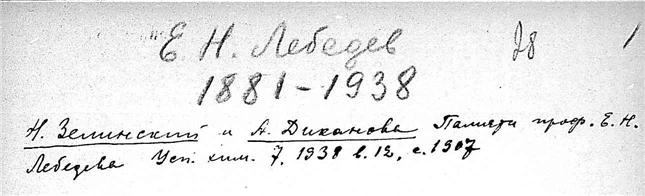 Е. Н. Лебедев 78 1
1881-1938
Н. Зелинский и А. Диканова Памяти проф. Е. Н.
Лебедева Усп. хим. 7, 1938 в. 12, с. 1907